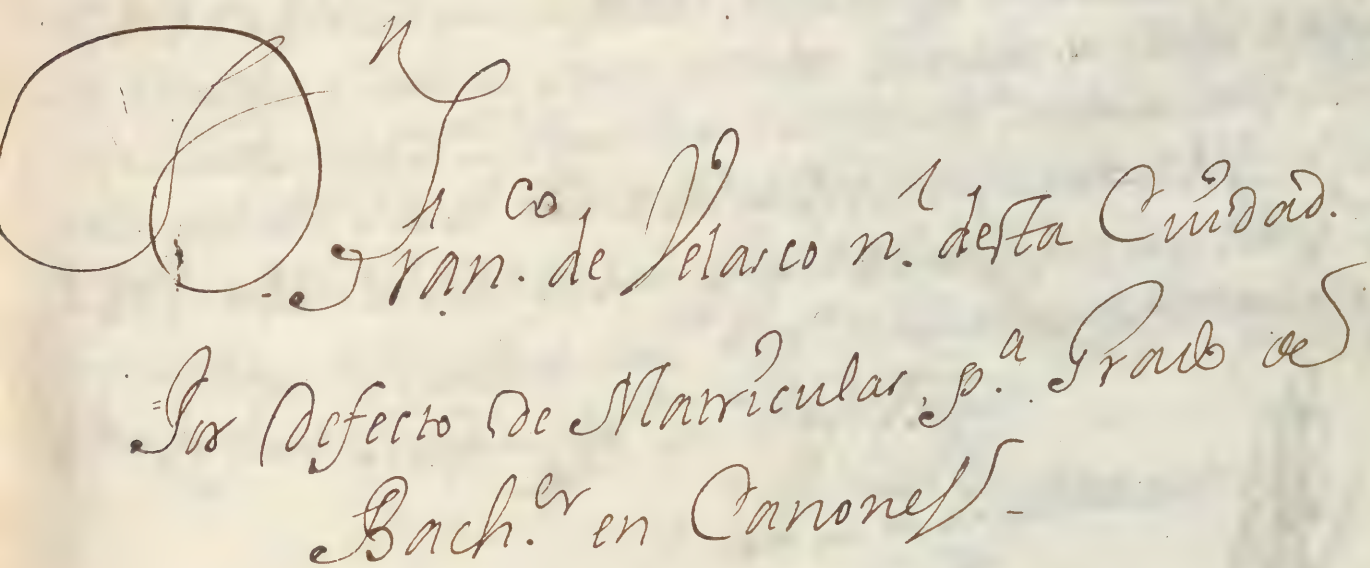 Dn Fran.co de Velasco n.l desta Ciudad.
Por Defecto de Matriculas, p.a Grado de
Bach.er en Canones -